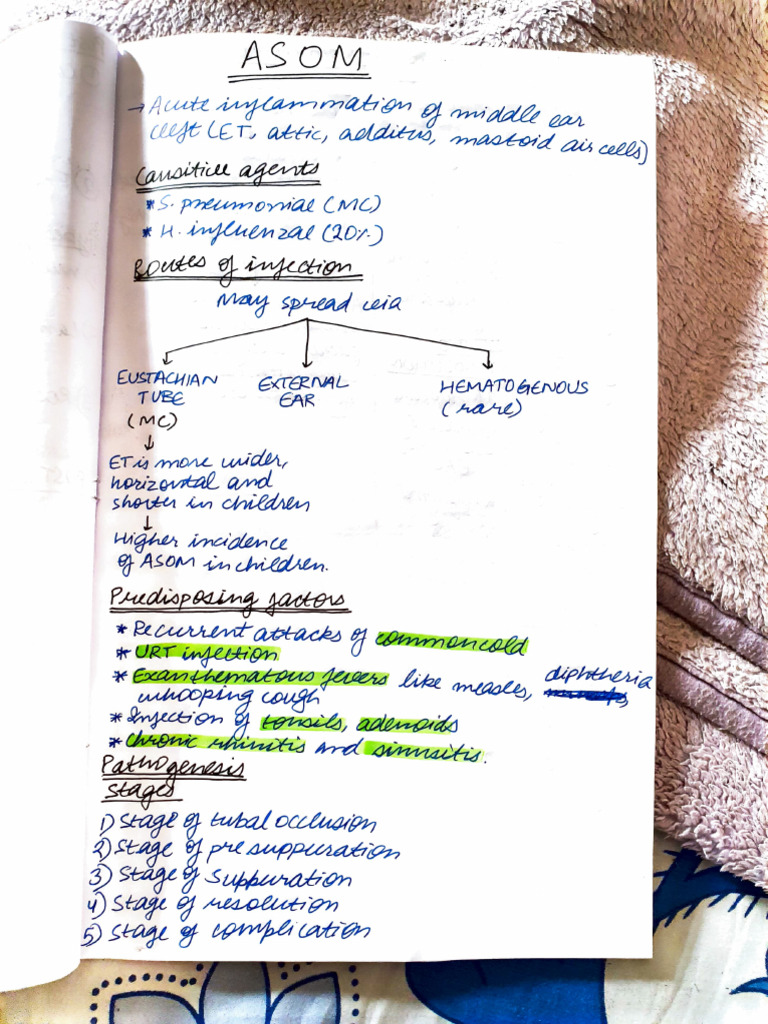 ASOM
→ Acute inflammation of middle ear
cleft (ET, attic, additus, mastoid air cells)
Causitive agents
* S. pneumoniae (MC)
* H. influenzae (20%)
Routes of infection
May spread via
EUSTACHIAN TUBE (MC)
EXTERNAL EAR
HEMATOGENOUS (rare)
↓
ET is more wider,
horizontal and
shorter in children
↓
Higher incidence
of ASOM in children.
Predisposing factors
* Recurrent attacks of common cold
* URT infection
* Exanthematous fevers like measles, diphtheria
whooping cough
* Infection of tonsils, adenoids
* Chronic rhinitis and sinusitis.
Pathogenesis
Stages
1) Stage of tubal occlusion
2) Stage of pre suppuration
3) Stage of suppuration
4) Stage of resolution
5) Stage of complication